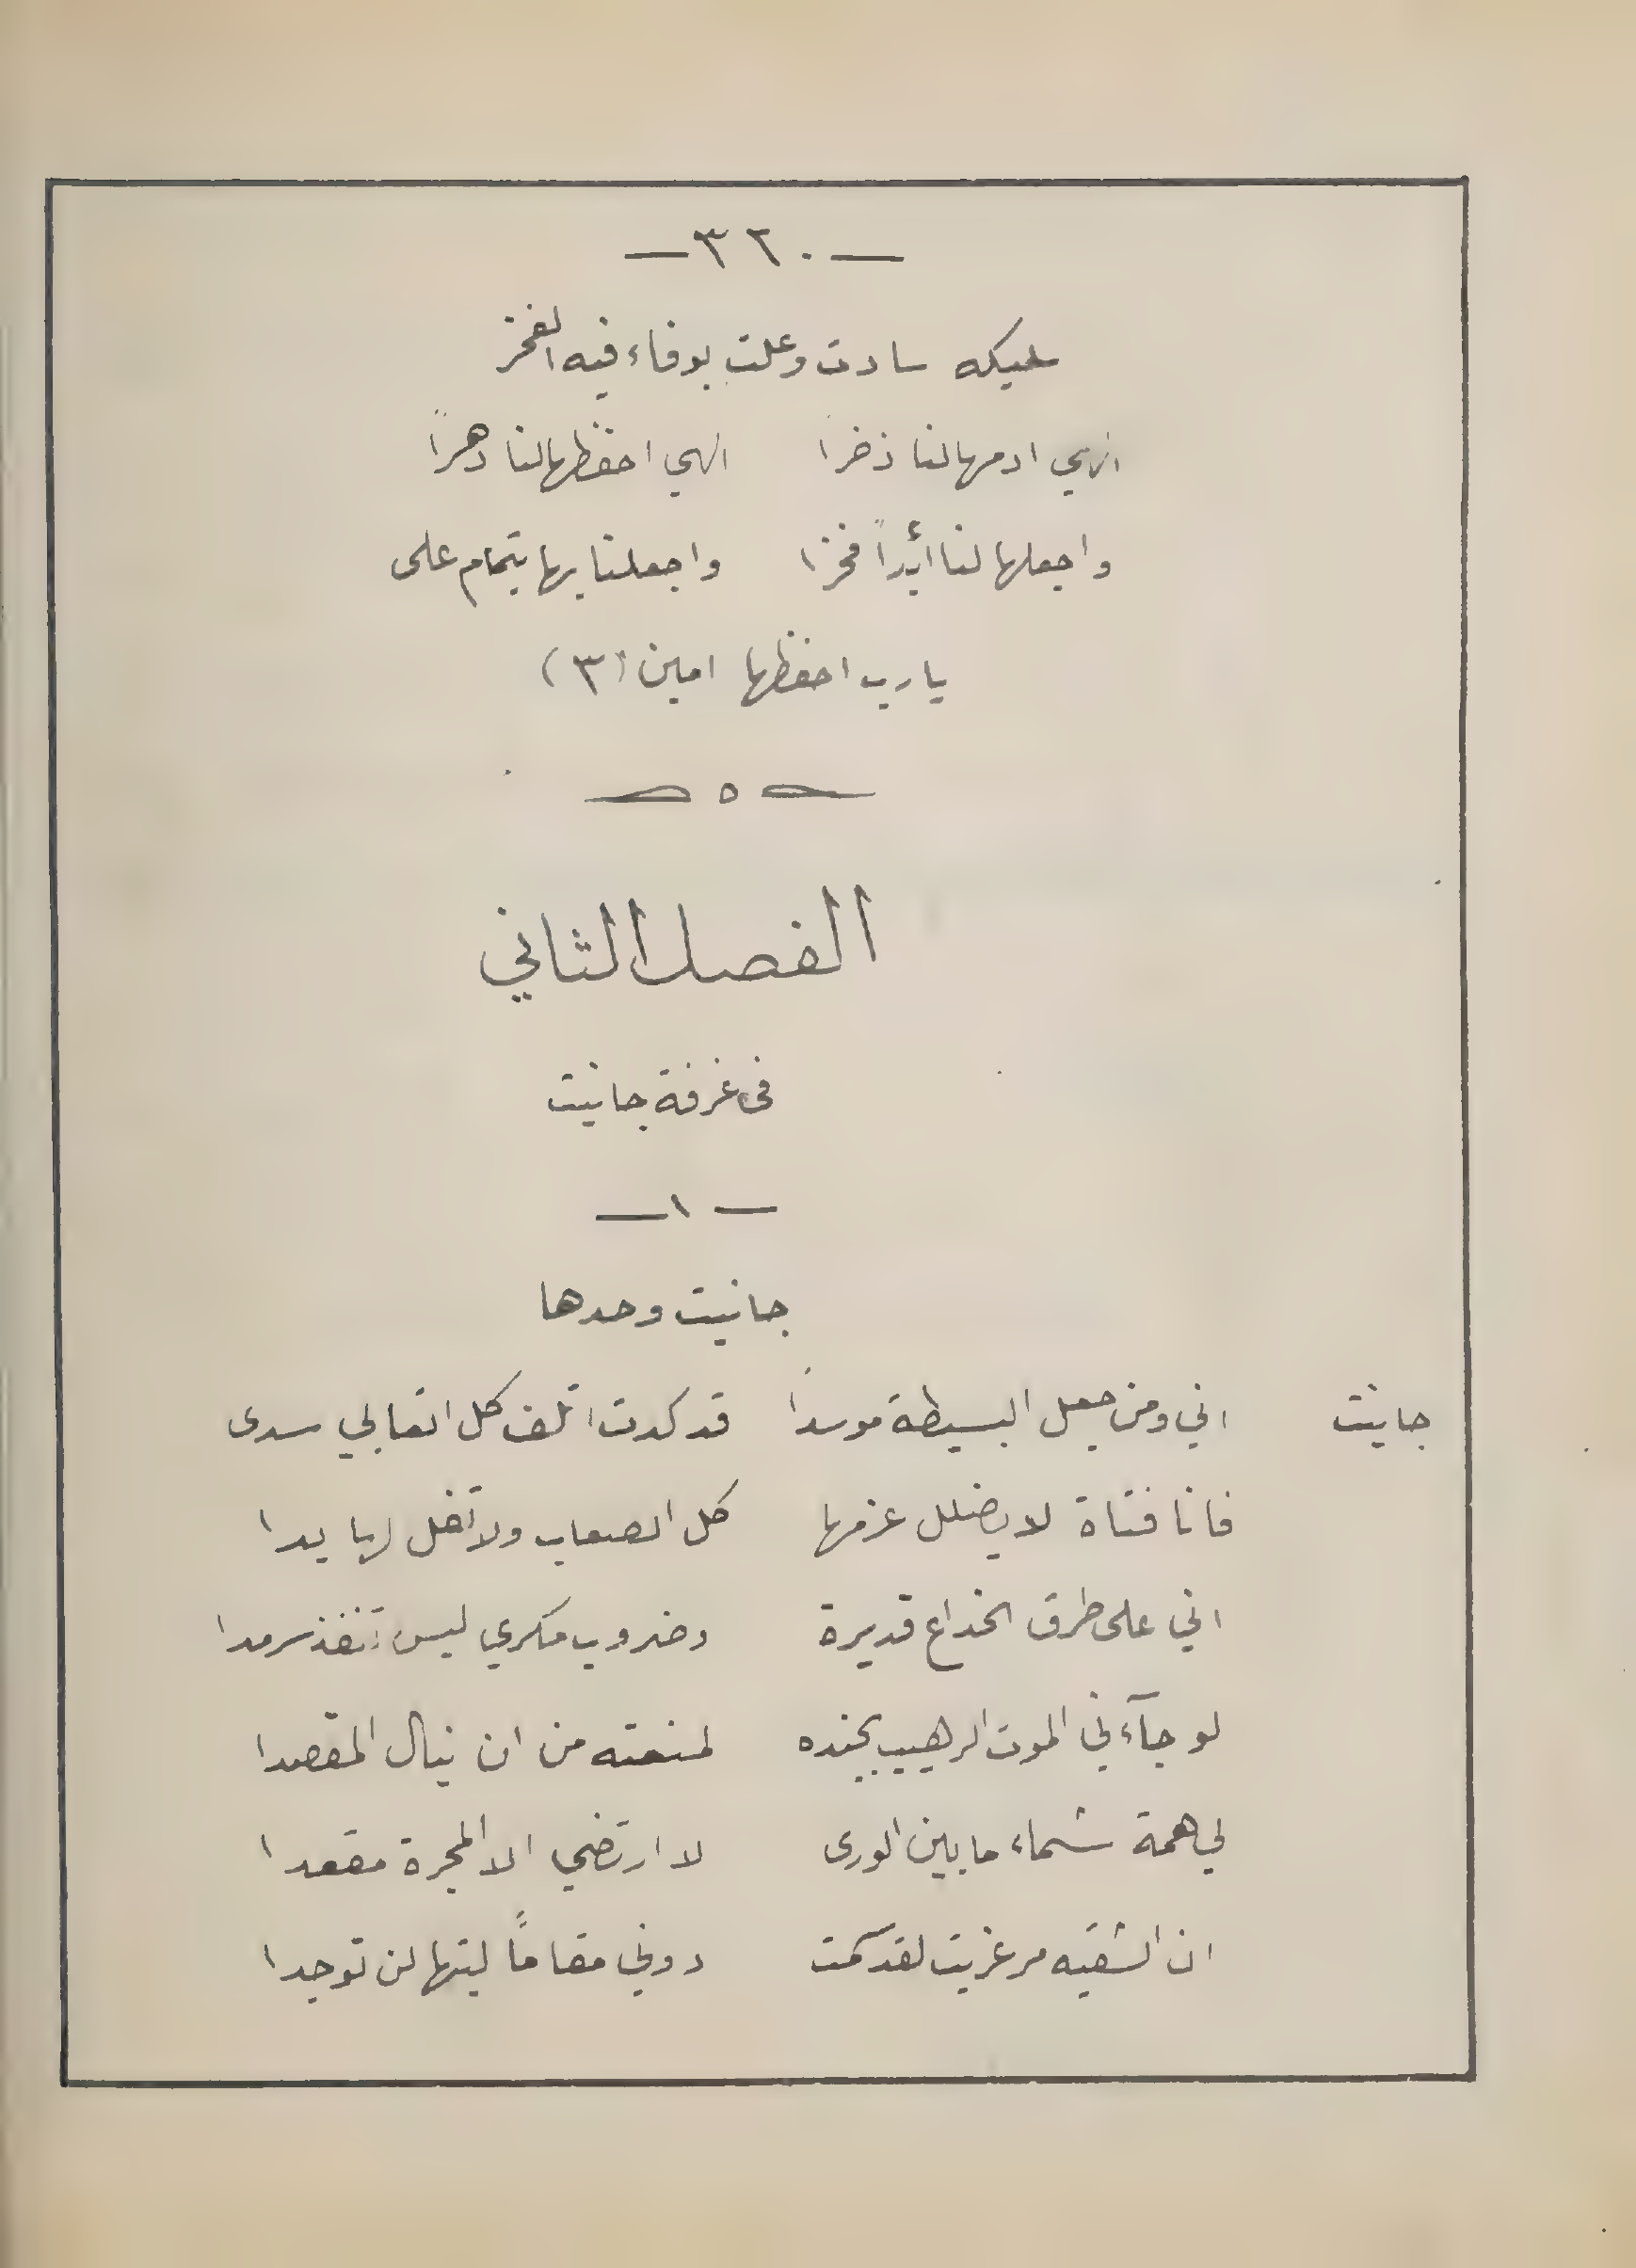 — ٣٢٠ —
مليكه سادت وعلت بوفاء فيه الفخر
الهي ادمها لنا ذخراً الهي احفظها لنا دهراً
واجعلها لنا ابداً فخرا واجعلنا بها بتمام على
يارب احفظها امين (٣)
الفصل الثاني
في غرفة جانيت
— ١ —
جانيت وحدها
جانيت اني ومن جعل البسيطة موسداً قد كدت اتلف كل اتعابي سدى
فانا فتاة لا يضلل عزمها كل الصعاب ولا تخل لها يدا
اني على طرق الخداع قديرة وضروب مكري ليس تنفذ سرمدا
لو جآءني الموت الرهيب بجنده لمنعته من ان ينال المقصدا
لي همة شماء ما بين الورى لا ارتضي الا المجرة مقعدا
ان الشقيه مرغريت لقد سمت دوني مقاماً ليتها لن توجدا